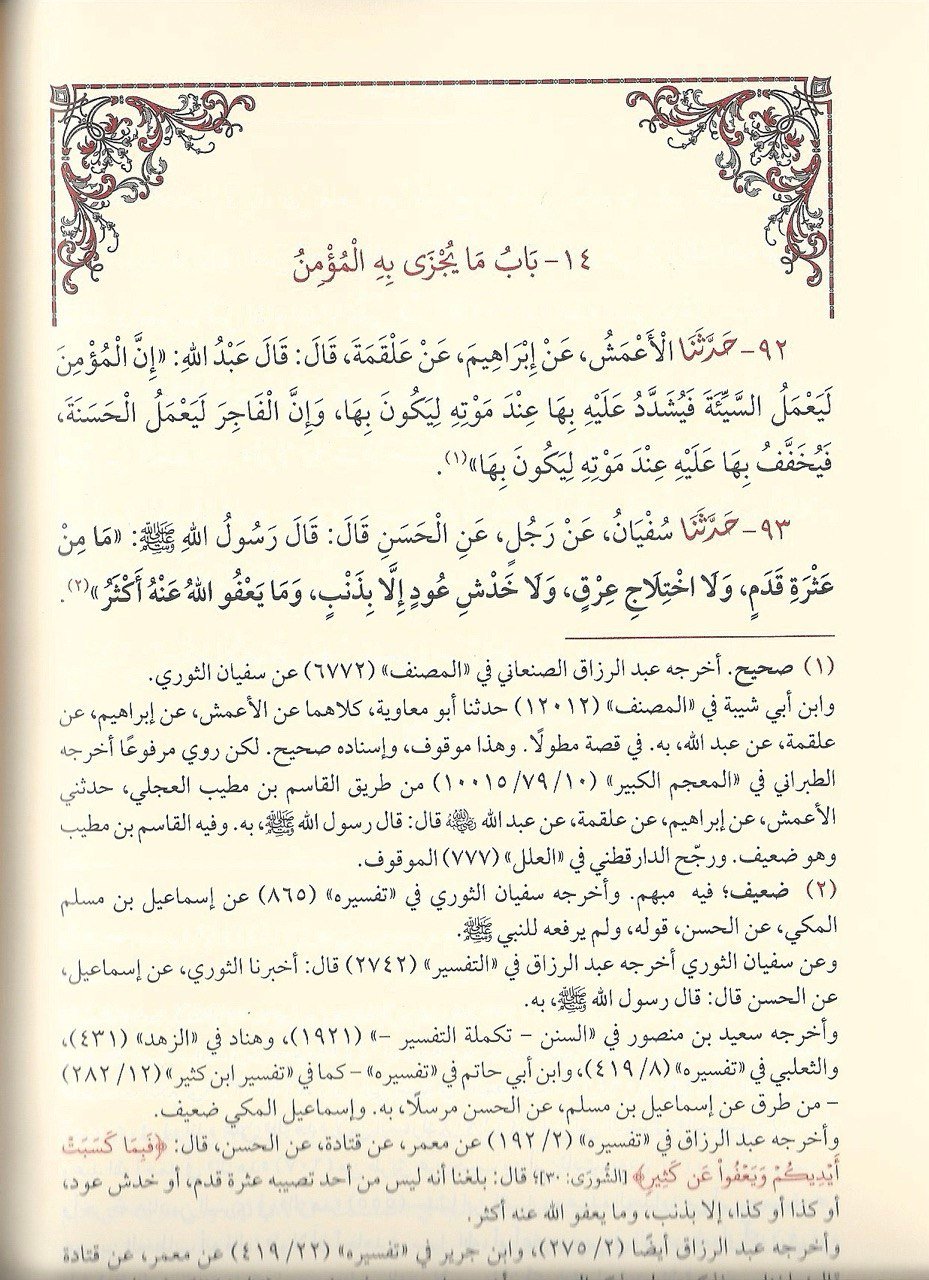 ١٤- بَابُ مَا يُجْزَى بِهِ الْمُؤْمِنُ
٩٢- حَدَّثَنَا الْأَعْمَشُ، عَنْ إِبْرَاهِيمَ، عَنْ عَلْقَمَةَ، قَالَ: قَالَ عَبْدُ اللهِ: «إِنَّ الْمُؤْمِنَ
لَيَعْمَلُ السَّيِّئَةَ فَيُشَدَّدُ عَلَيْهِ بِهَا عِنْدَ مَوْتِهِ لِيَكُونَ بِهَا، وَإِنَّ الْفَاجِرَ لَيَعْمَلُ الْحَسَنَةَ،
فَيُخَفَّفُ بِهَا عَلَيْهِ عِنْدَ مَوْتِهِ لِيَكُونَ بِهَا»(١).
٩٣- حَدَّثَنَا سُفْيَانُ، عَنْ رَجُلٍ، عَنِ الْحَسَنِ قَالَ: قَالَ رَسُولُ اللهِ ﷺ: «مَا مِنْ
عَثْرَةِ قَدَمٍ، وَلَا اخْتِلَاجِ عِرْقٍ، وَلَا خَدْشِ عُودٍ إِلَّا بِذَنْبٍ، وَمَا يَعْفُو اللهُ عَنْهُ أَكْثَرُ»(٢).
(١) صحيح. أخرجه عبد الرزاق الصنعاني في «المصنف» (٦٧٧٢) عن سفيان الثوري.
وابن أبي شيبة في «المصنف» (١٢٠١٢) حدثنا أبو معاوية، كلاهما عن الأعمش، عن إبراهيم، عن
علقمة، عن عبد الله، به. في قصة مطولًا. وهذا موقوف، وإسناده صحيح. لكن روي مرفوعًا أخرجه
الطبراني في «المعجم الكبير» (١٠/ ٧٩/ ١٠٠١٥) من طريق القاسم بن مطيب العجلي، حدثني
الأعمش، عن إبراهيم، عن علقمة، عن عبد الله رضي الله عنه قال: قال رسول الله ﷺ، به. وفيه القاسم بن مطيب
وهو ضعيف. ورجّح الدارقطني في «العلل» (٧٧٧) الموقوف.
(٢) ضعيف؛ فيه مبهم. وأخرجه سفيان الثوري في «تفسيره» (٨٦٥) عن إسماعيل بن مسلم
المكي، عن الحسن، قوله، ولم يرفعه للنبي ﷺ.
وعن سفيان الثوري أخرجه عبد الرزاق في «التفسير» (٢٧٤٢) قال: أخبرنا الثوري، عن إسماعيل،
عن الحسن قال: قال رسول الله ﷺ، به.
وأخرجه سعيد بن منصور في «السنن - تكملة التفسير -» (١٩٢١)، وهناد في «الزهد» (٤٣١)،
والثعلبي في «تفسيره» (٨/ ٤١٩)، وابن أبي حاتم في «تفسيره» - كما في «تفسير ابن كثير» (١٢/ ٢٨٢)
- من طرق عن إسماعيل بن مسلم، عن الحسن مرسلًا، به. وإسماعيل المكي ضعيف.
وأخرجه عبد الرزاق في «تفسيره» (٢/ ١٩٢) عن معمر، عن قتادة، عن الحسن، قال: ﴿فَبِمَا كَسَبَتْ
أَيْدِيكُمْ وَيَعْفُوا۟ عَن كَثِيرٍ﴾ [الشُّورَى: ٣٠]؛ قال: بلغنا أنه ليس من أحد تصيبه عثرة قدم، أو خدش عود،
أو كذا أو كذا، إلا بذنب، وما يعفو الله عنه أكثر.
وأخرجه عبد الرزاق أيضًا (٢/ ٢٧٥)، وابن جرير في «تفسيره» (٢٢/ ٤١٩) عن معمر، عن قتادة